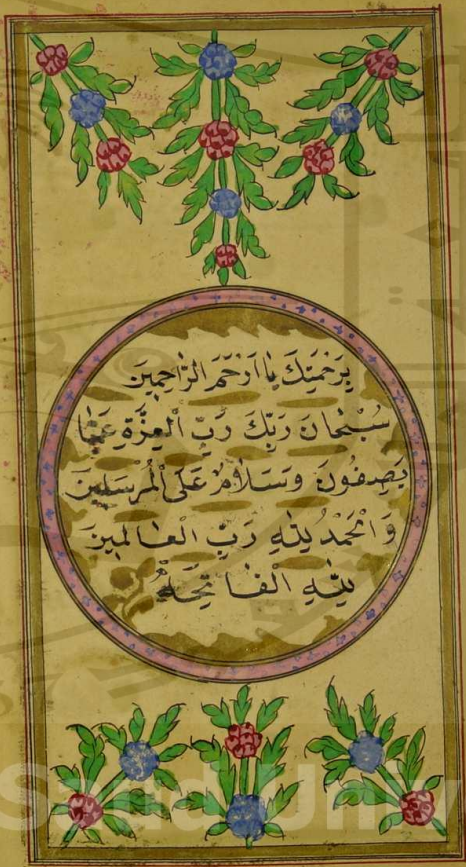 بِرَحْمَتِكَ يَا اَرْحَمَ الرَّاحِمِينَ
سُبْحَانَ رَبِّكَ رَبِّ الْعِزَّةِ عَمَّا
يَصِفُونَ وَسَلَامٌ عَلَى الْمُرْسَلِينَ
وَالْحَمْدُ لِلّٰهِ رَبِّ الْعَالَمِينَ
لِلّٰهِ الْفَاتِحَةْ
Saud Univ